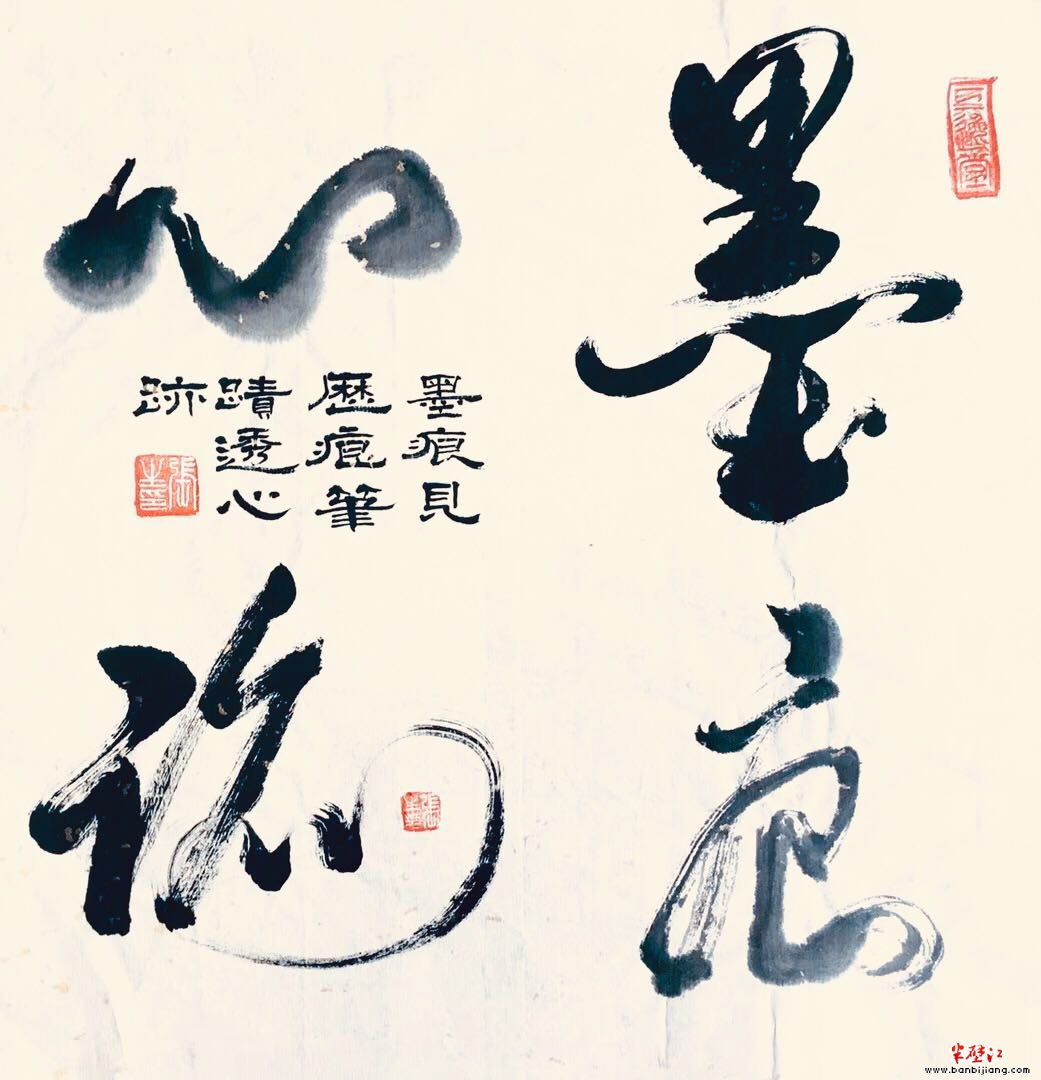 墨痕
心跡
墨痕見
歷痕筆
蹟透心
跡
半壁江
www.banbijiang.com